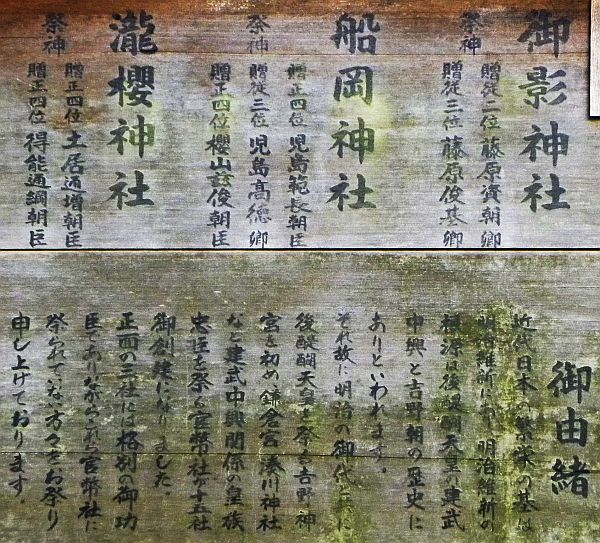 御影神社
祭神
贈従二位 藤原資朝卿
贈従三位 藤原俊基卿
船岡神社
祭神
贈正四位 児島範長朝臣
贈従三位 児島高徳卿
贈正四位 櫻山茲俊朝臣
瀧櫻神社
祭神
贈正四位 土居通増朝臣
贈正四位 得能通綱朝臣
御由緒
近代日本の繁栄の基は
明治維新に 明治維新の
根源は後醍醐天皇の建武
中興と吉野朝の歴史に
ありといわれます。
それ故に明治の御代に
後醍醐天皇を祭る吉野神
宮を初め鎌倉宮湊川神社
など建武中興関係の皇族
忠臣を祭る官幣社が十五社
御創建になりました。
正面の三社には格別の御功
臣でありながらこれら官幣社に
祭られていない方々をお祭り
申し上げております。